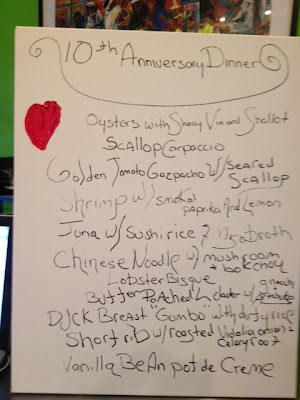 10th Anniversary Dinner
Oysters with Sherry Vin and Shallot
Scallop Carpaccio
Golden Tomato Gazpacho w/ Seared
Scallop
Shrimp w/ smoked
paprika and Lemon
Tuna w/ Sushi rice & Miso Broth
Chinese Noodle w/ mushroom
+ bok choy
Lobster Bisque
Butter Poached Lobster w/ gnocchi
Duck Breast "Gumbo" with dirty rice
Short rib w/ roasted Vidalia onion &
Celery root
Vanilla Bean pot de Creme